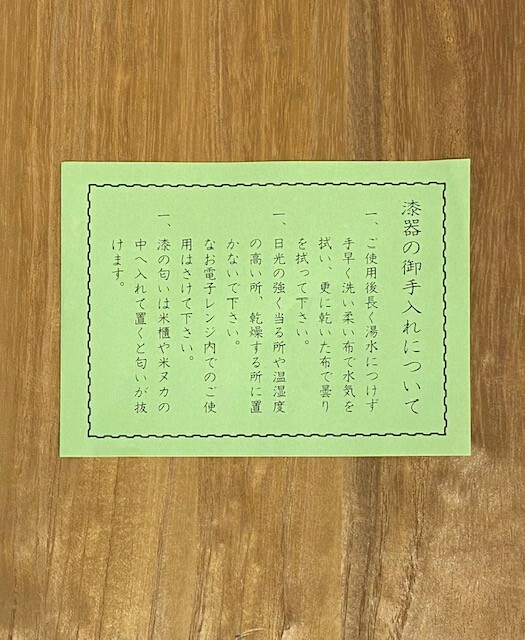 漆器の御手入れについて
一、ご使用後長く湯水につけず
手早く洗い柔い布で水気を
拭い、更に乾いた布で曇り
を拭って下さい。
一、日光の強く当る所や温湿度
の高い所、乾燥する所に置
かないで下さい。
なお電子レンジ内でのご使
用はさけて下さい。
一、漆の匂いは米櫃や米ヌカの
中へ入れて置くと匂いが抜
けます。